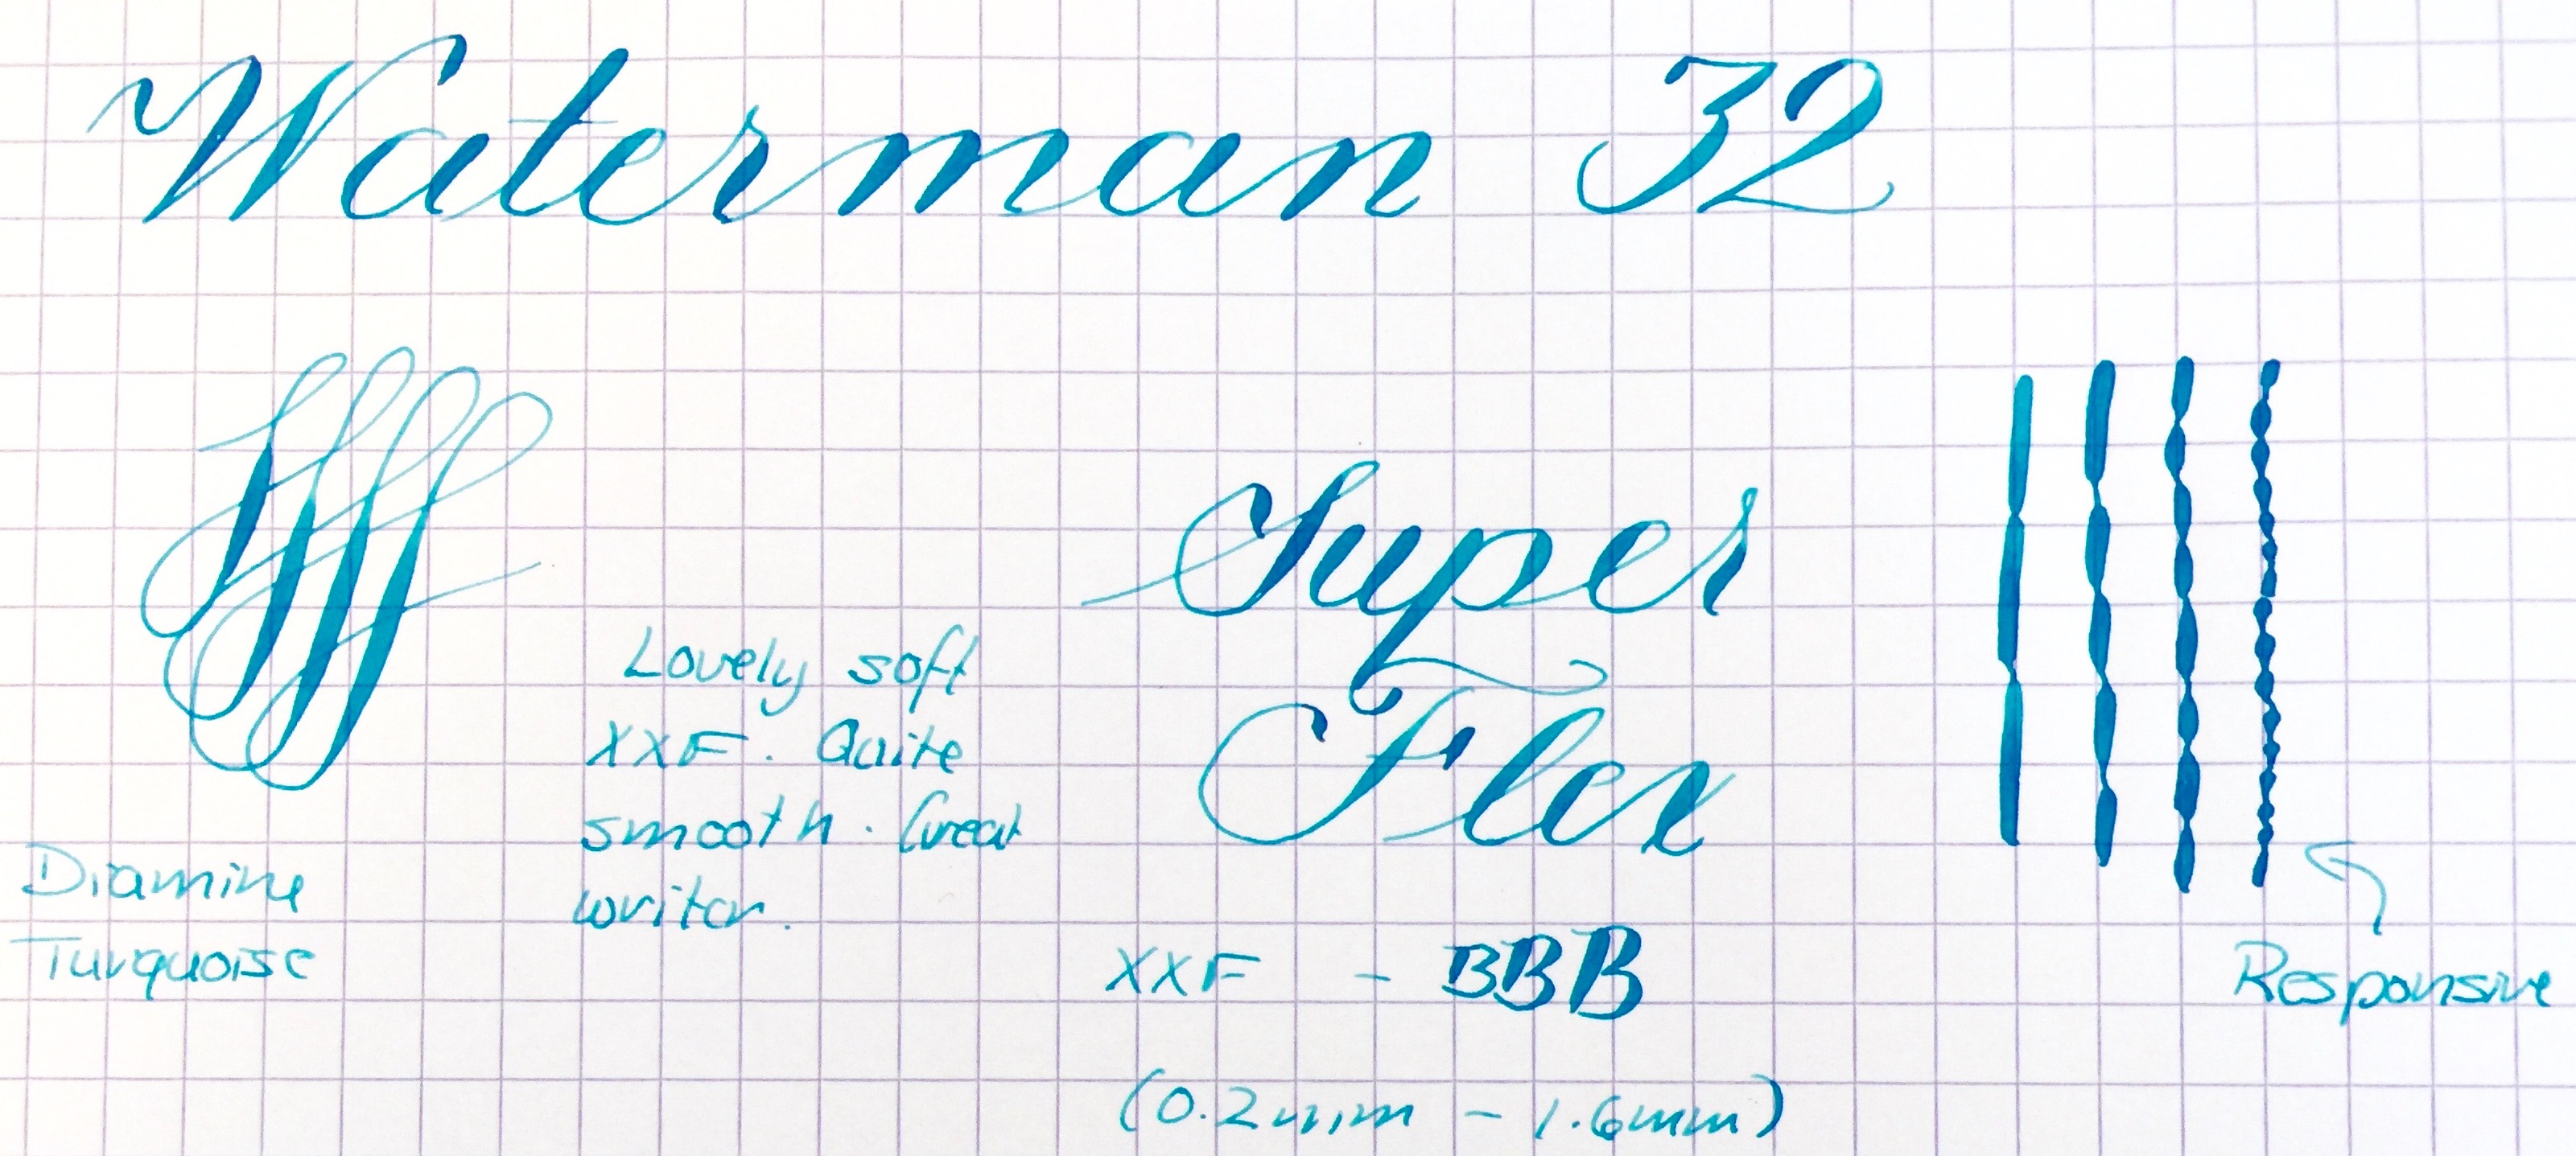 Waterman 32
Super
Flex
Lovely soft
XXF. Quite
smooth. Great
writer.
Diamine
Turquoise
XXF - BBB
(0.2mm - 1.6mm)
Responsive